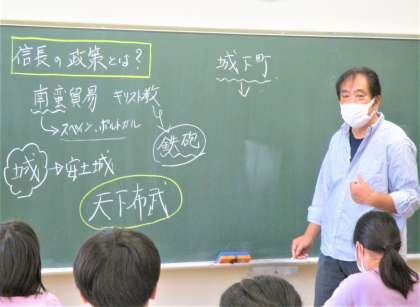 信長の政策とは？
南蛮貿易 キリスト教
スペイン、ポルトガル
鉄砲
城→安土城
天下布武
城下町